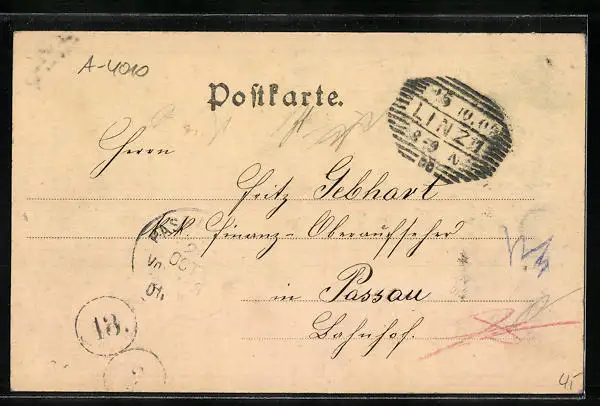 A-4010
Postkarte.
LINZ
Herrn
Fritz Gebhart
K.K. Finanz-Oberaufseher
PAS
OC
in Passau
Bahnhof.
13.